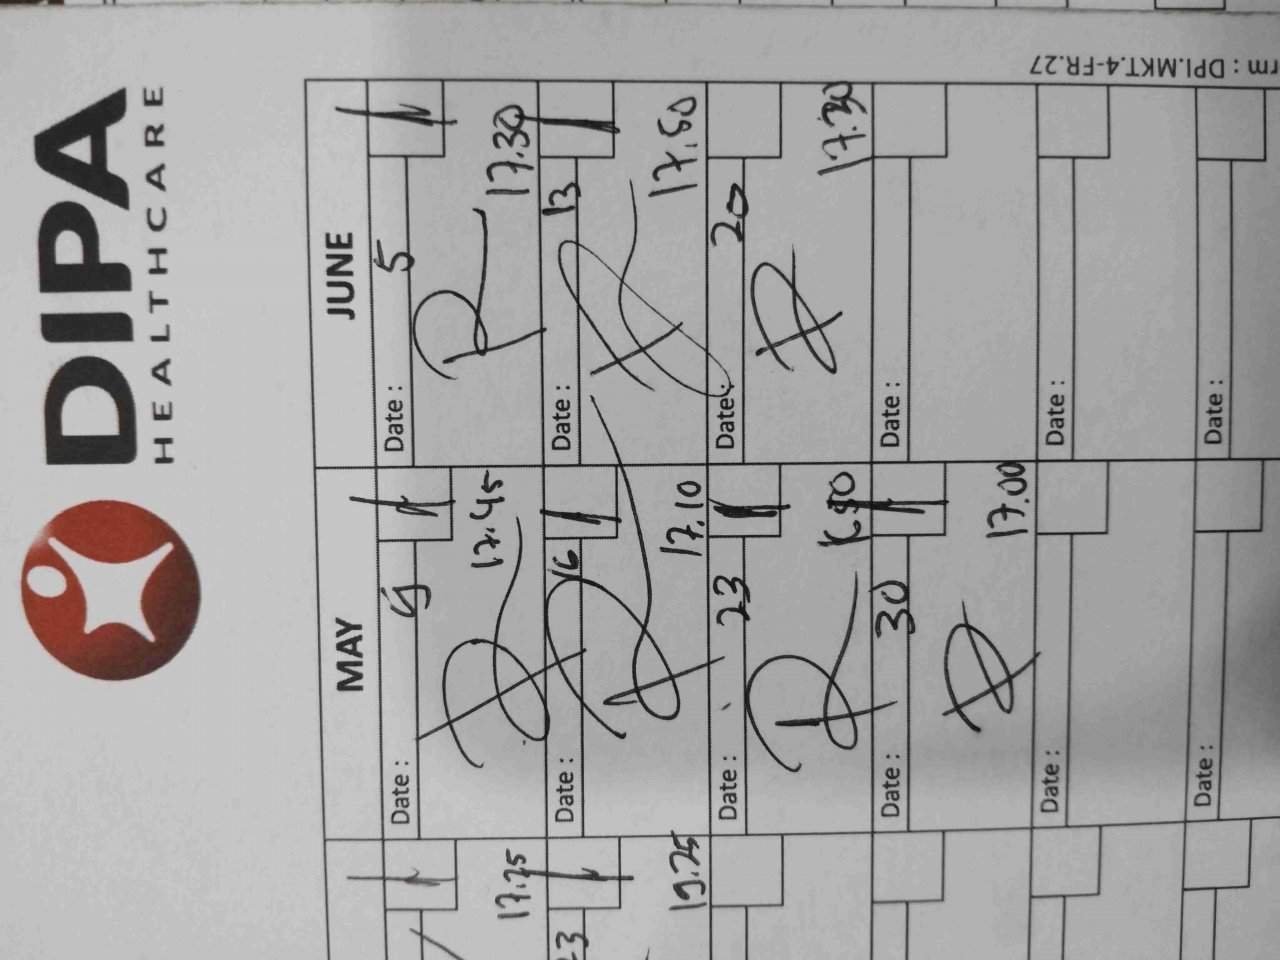 DIPA
HEALTHCARE
rm : DPI.MKT.4-FR.27
MAY
JUNE
Date : 9
17.45
Date : 5
17.30
Date : 16
17.10
Date : 13
17.50
Date : 23
Date : 20
17.30
Date : 30
17.00
Date :
Date :
Date :
Date :
Date :
17.25
23
19.25